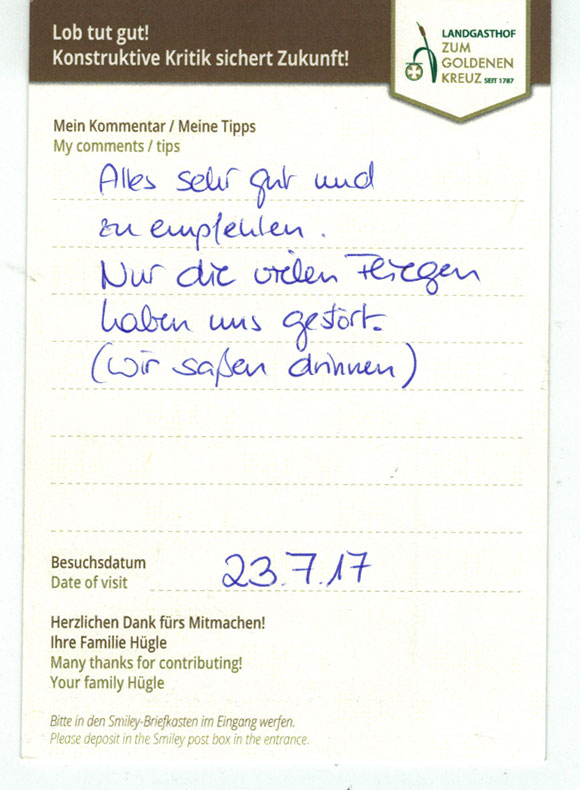 Lob tut gut!
Konstruktive Kritik sichert Zukunft!
LANDGASTHOF
ZUM
GOLDENEN
KREUZ SEIT 1787
Mein Kommentar / Meine Tipps
My comments / tips
Alles sehr gut und
zu empfehlen.
Nur die vielen Fliegen
haben uns gestört.
(wir saßen drinnen)
Besuchsdatum
Date of visit
23.7.17
Herzlichen Dank fürs Mitmachen!
Ihre Familie Hügle
Many thanks for contributing!
Your family Hügle
Bitte in den Smiley-Briefkasten im Eingang werfen.
Please deposit in the Smiley post box in the entrance.